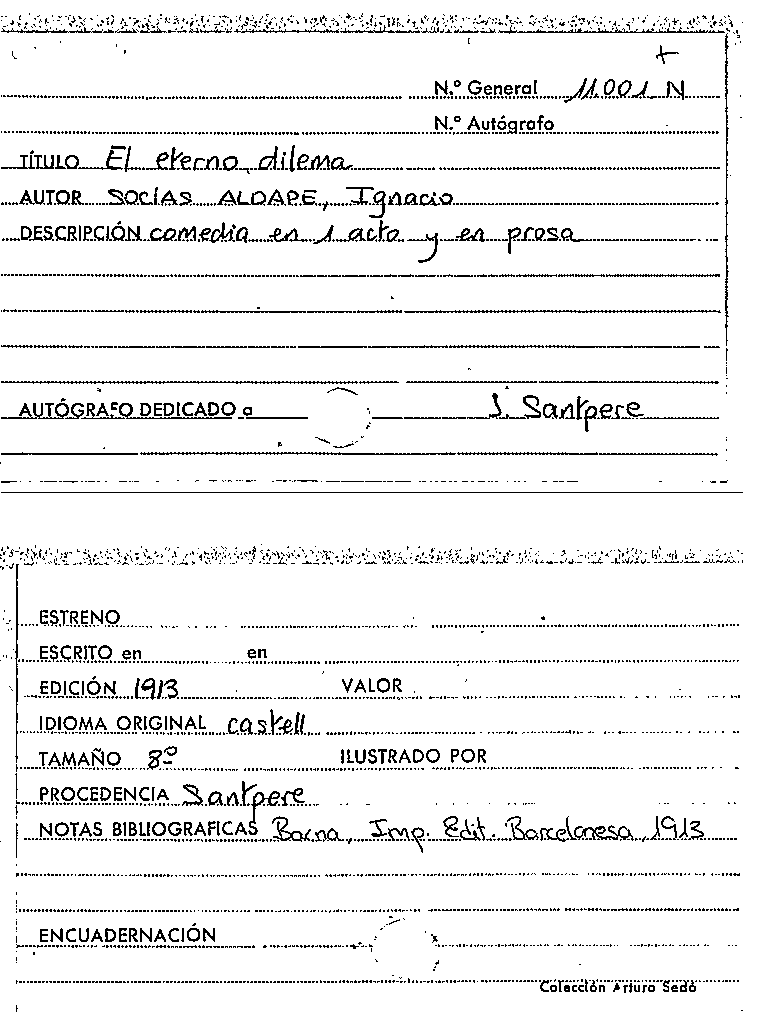 +
N.º General 11.001 N
N.º Autógrafo
TÍTULO El eterno dilema
AUTOR SOCÍAS ALDAPE, Ignacio
DESCRIPCIÓN comedia en 1 acto y en prosa
AUTÓGRAFO DEDICADO a J. Santpere
ESTRENO
ESCRITO en en
EDICIÓN 1913 VALOR
IDIOMA ORIGINAL castell
TAMAÑO 8º ILUSTRADO POR
PROCEDENCIA Santpere
NOTAS BIBLIOGRAFICAS Barna, Imp. Edit. Barcelonesa, 1913
ENCUADERNACIÓN
Colección Arturo Sedó